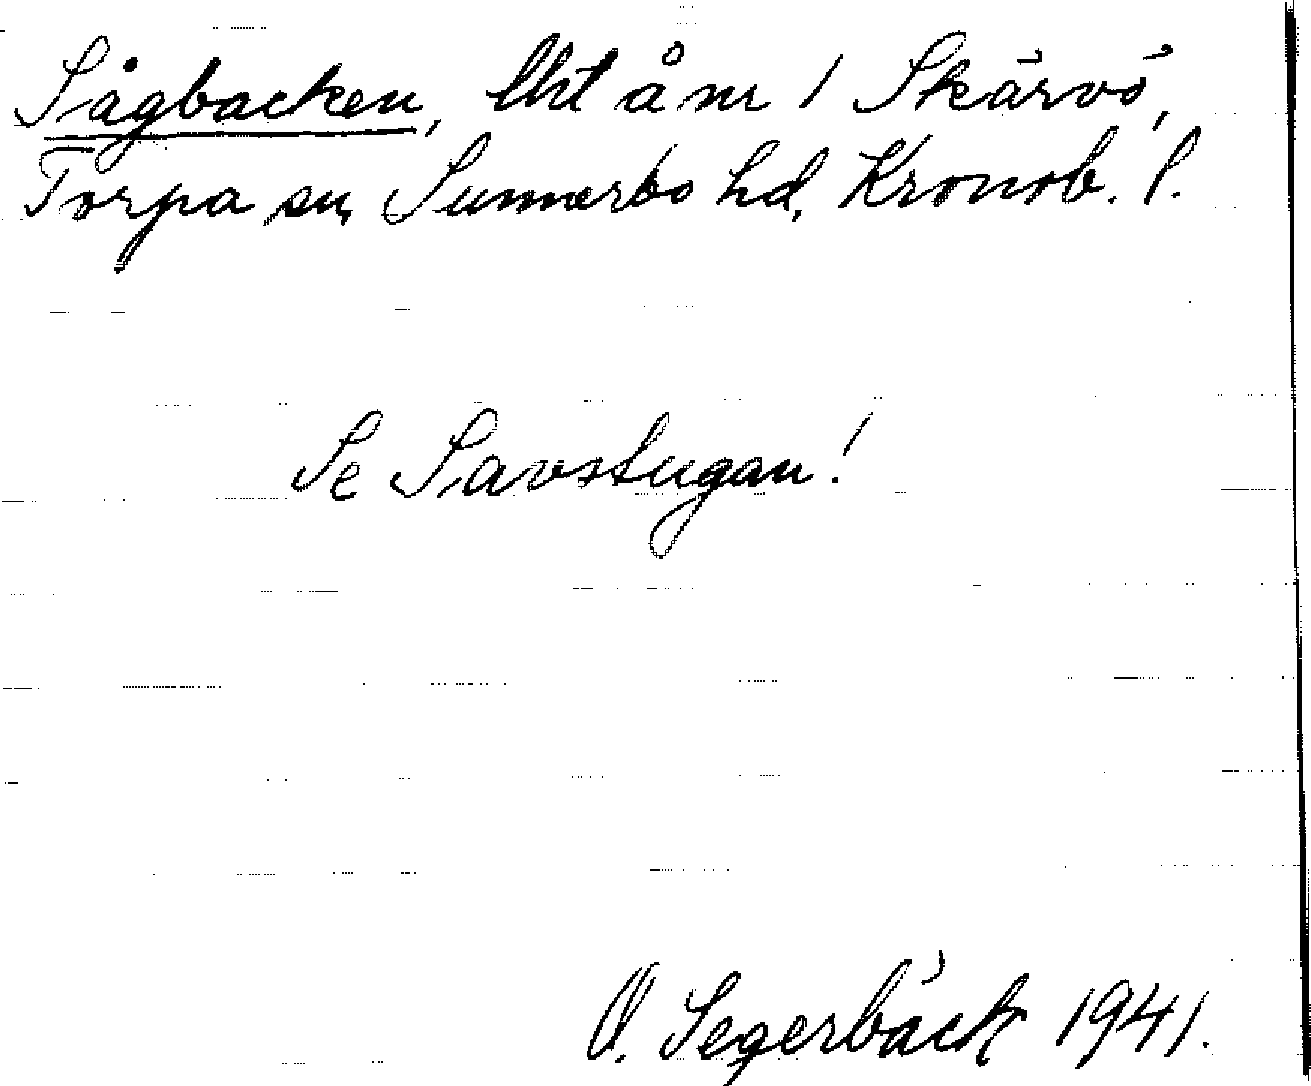 Sågbacken, lht å nr 1 Skärvö,
Torpa sn, Sunnerbo hd, Kronob. l.
Se Savstugan!
O. Segerbäck 1941.